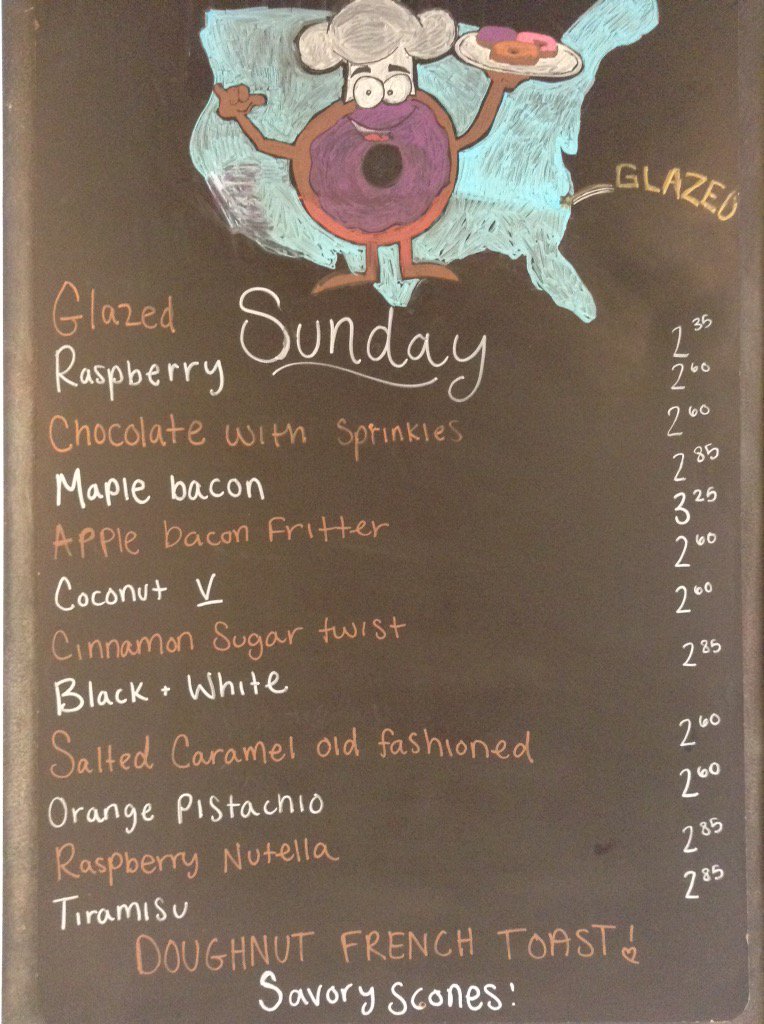 GLAZED
Sunday
Glazed 2 35
Raspberry 2 60
Chocolate with Sprinkles 2 60
Maple bacon 2 85
Apple bacon Fritter 3 25
Coconut V 2 60
Cinnamon Sugar twist 2 60
Black + White 2 85
Salted Caramel old fashioned 2 60
Orange Pistachio 2 60
Raspberry Nutella 2 85
Tiramisu 2 85
DOUGHNUT FRENCH TOAST!
Savory Scones: